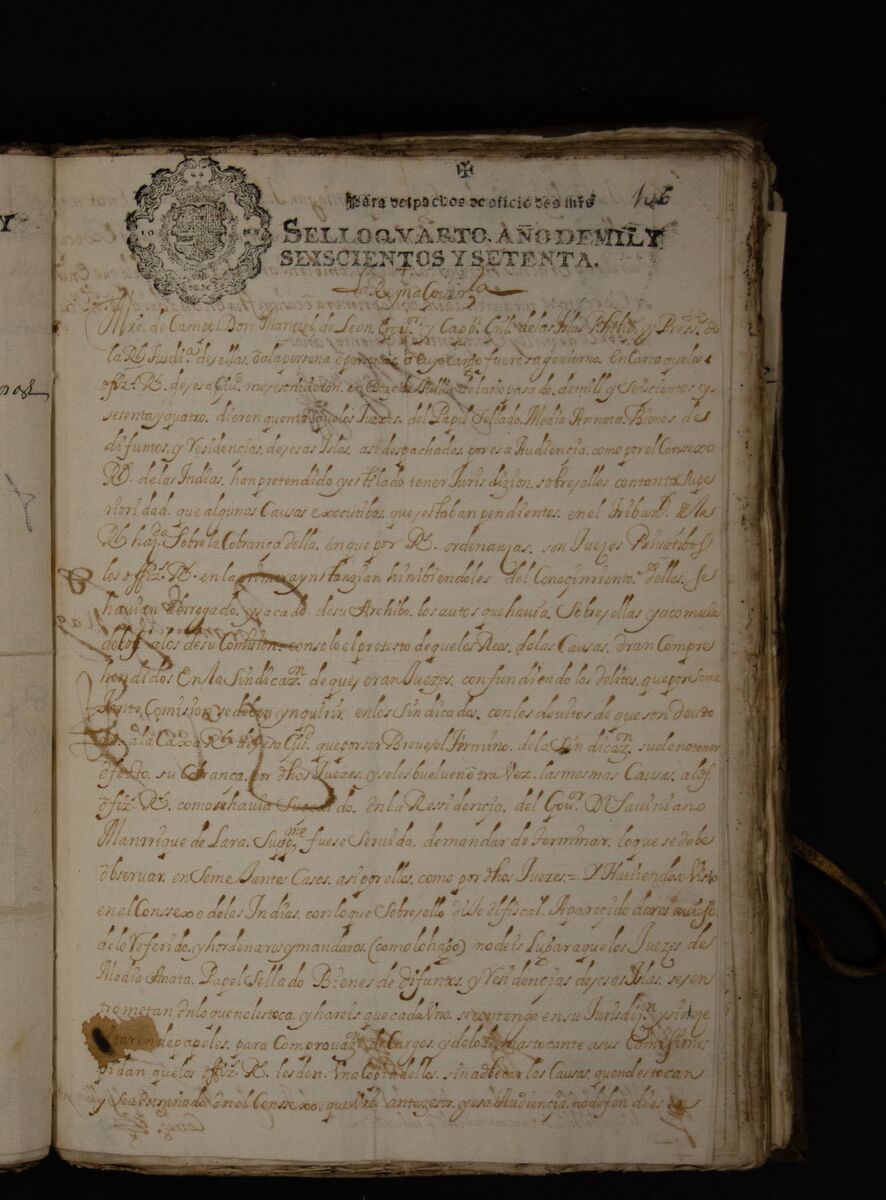 ✠
Para despachos de oficio dos mrs
106
SELLO QVARTO. AÑO DE MIL Y
SEISCIENTOS Y SETENTA.
La Reyna Gover.ra
Mro. de Campo Don Manuel de Leon Gov.or y Cap.n Gnl. de las Islas Philip.s y Press.te de
la Rl Audi.a de ellas. o a la persona o personas a cuyo cargo fuere su govierno. En carta que los
offiz.s R.s de esa Ciu.d me escrivieron. en de Jullio del año pasado. de mill y Seiscientos y
setenta y quatro. dieron quenta que los Juezes. del Papel Sellado. Media Annata. Bienes de
difuntos. y Residencias. de esas Islas. asi despachadas. por esa Audiencia. como por el Consexo
Rl. de las Indias. han pretendido y estilado tener Jurisdizion. sobre ellos con tanta supe
rioridad. que algunas Causas executibas. que estaban pendientes. en el Tribun.l de la
Rl haz.da Sobre la Cobranca della. en que por R.s ordenanzas. son Juezes Privatibos
los offiz.s R.s en la primera ynstanzia inhibiendoles del Conocimiento. dellas. se
havian abrogado. y sacado. de su Archibo. los autos que havia. Sobre ellas y acomula
dolos a los de su Comision. con solo el pretesto de que los Reos. de las Causas. eran Compre
hendidos En la Sindicaz.n de que eran Juezes. confundiendo los delitos. que por seme
jante Comision se deben ynquirir. en los Sindicados. con los devitos de que son deudo
res. a la Caxa Rl de esa Ciu.d que por ser Breve el termino. de la Sindicaz.n suele no tener
efecto. su Cobranca. por dhos Juezes. y se les buelven otra Vez. las mesmas Causas. a los
offiz.s R.s como havia Sucedido. en la Ressidencia. del Gov.or Dn Saviniano
Manrrique de Lara. Supp.me fuese Servida. de mandar determinar. lo que se debe
observar. en Semejantes Casos. asi por ellos. como por dhos Juezes = Y Haviendose Visto
en el Conssexo de las Indias. con lo que Sobre ello dijo el fiscal. A parecido daros aviso
de lo referido. y hordenaros y mandaros. (como lo hago) no deis Lugar a que los Juezes de
Media Anata. Papel Sellado Bienes de difuntos. y Residencias de esas Islas. se en
trometan en lo que no les toca. y hareis que cada Uno. se contenga en su Jurisdi.on y si nece
sitaren de papeles. para Comprovaz.n de Cargos. y de lo demas tocante a sus Comisiones
pidan que los offiz.s R.s les den. Una Copia dellos. sin advocar las Causas. que no les tocan
y se a estrañado en el Conssexo. que Vro antezesor. y esa Audiencia. no defendiesen